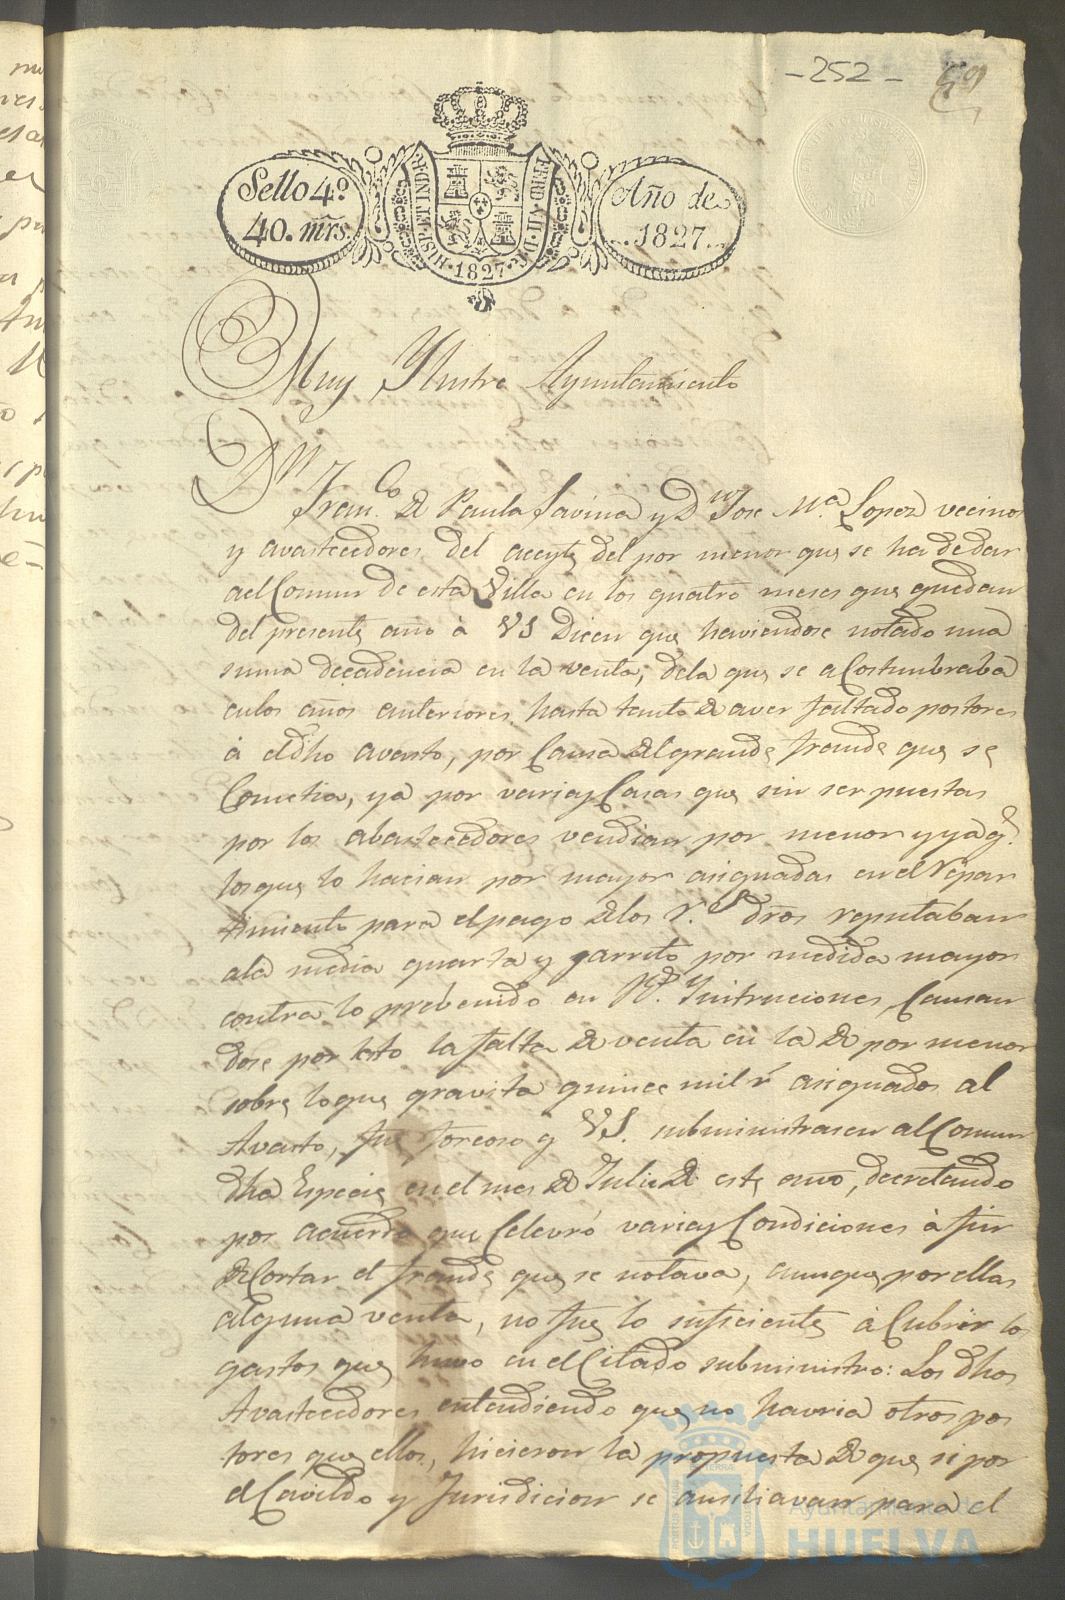 -252-
Sello 4º
40. mrs.
HISP. ET IND. R.
FERD. VII. D. G.
1827
Año de
1827
Muy Ylustre Ayuntamiento
Dn Franco. de Paula Savina y Dn Jose Ma. Lopez vecinos
y avastecedores del aceyte del por menor que se ha de dar
ael Comun de esta Villa en los quatro meses que quedan
del presente año à VS Dicen que haviendose notado una
suma decadencia en la venta, dela que se a Costumbraba
enlos años anteriores, hasta tanto de aver faltado postores
à el dho avasto, por Causa del grande fraude que se
Cometia, ya por varias Casas que sin ser puestas
por los abastecedores vendian por menor y ya q.
los que lo hacian por mayor asignadas en el repar
timiento para el pago de los rs. dros reputaban
ala media quarta y jarrito por medida mayor
contra lo prebenido en Rs. Ynstruciones, Causan
dose por esto la falta de venta en la de por menor
sobre loque gravita quince mil rs asignados al
Avasto, fue forcoso q VS. subministrasen al Comun
dha Especie en el mes de Julio de este año, decretando
por acuerdo que Celevró varias Condiciones à fin
de Cortar el fraude que se notava, aunque por ellas
alguna venta, no fue lo suficiente à Cubrir lo
gastos que huvo en el Citado subministro: Los dhos
Avastecedores entendiendo que no havria otros pos
tores que ellos, hicieron la propuesta de que si por
el Cavildo y Jurisdicion se ausiliavan para el
Ayuntamiento de
HUELVA